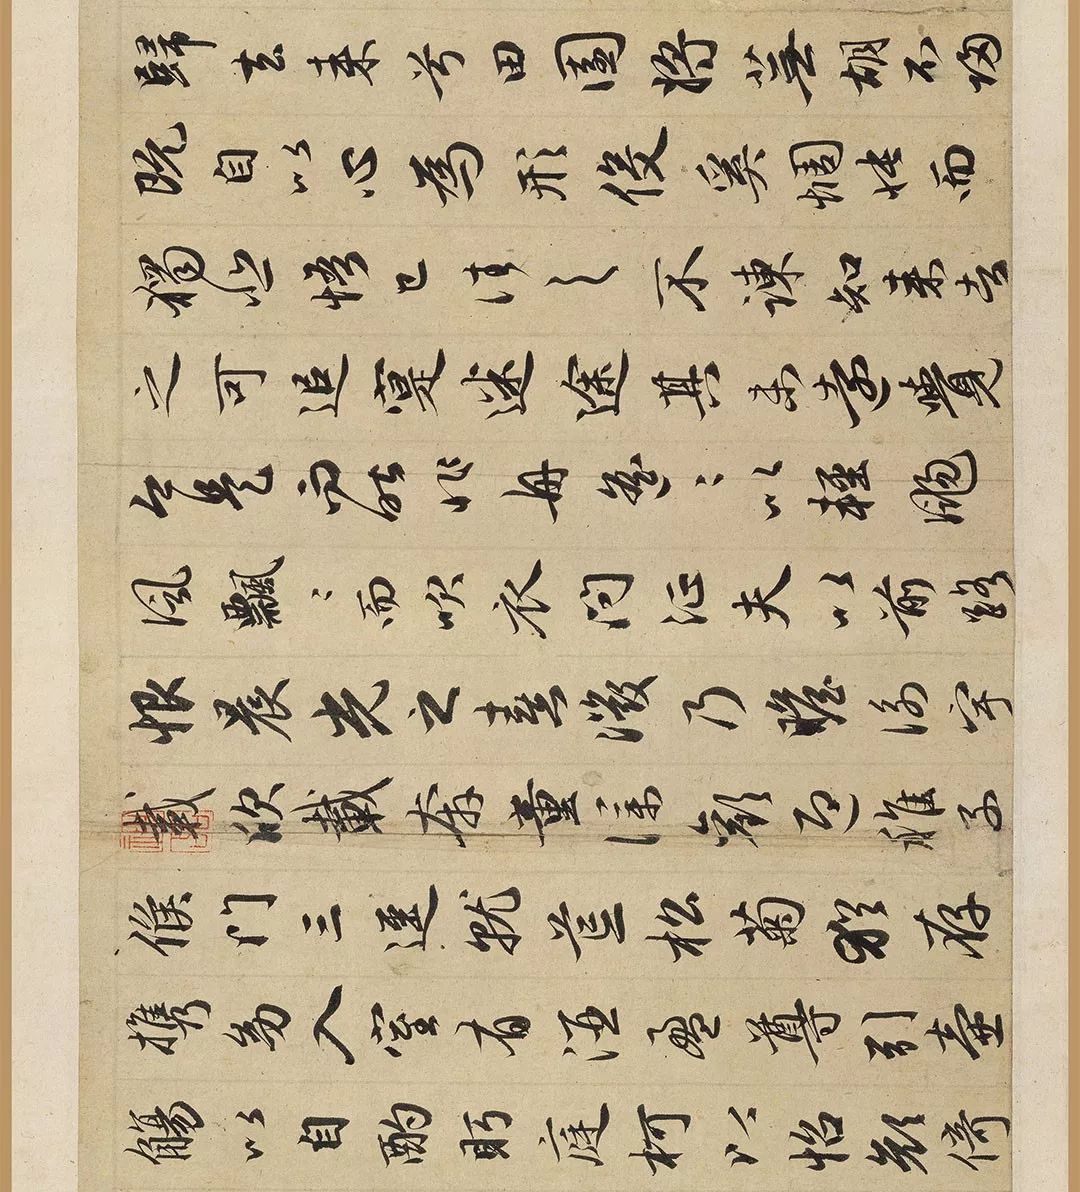 歸去来兮田園将蕪胡不歸
既自以心為形役奚惆悵而
獨悲悟已往之不諫知来者
之可追寔迷途其未遠覺
今是而昨非舟遥〻以軽颺
風飄〻而吹衣問征夫以前路
恨晨光之熹微乃瞻衡宇
載欣載奔童僕歡迎稚子
候門三逕就荒松菊猶存
携幼入室有酒盈尊引壷
觴以自酌眄庭柯以怡顔倚